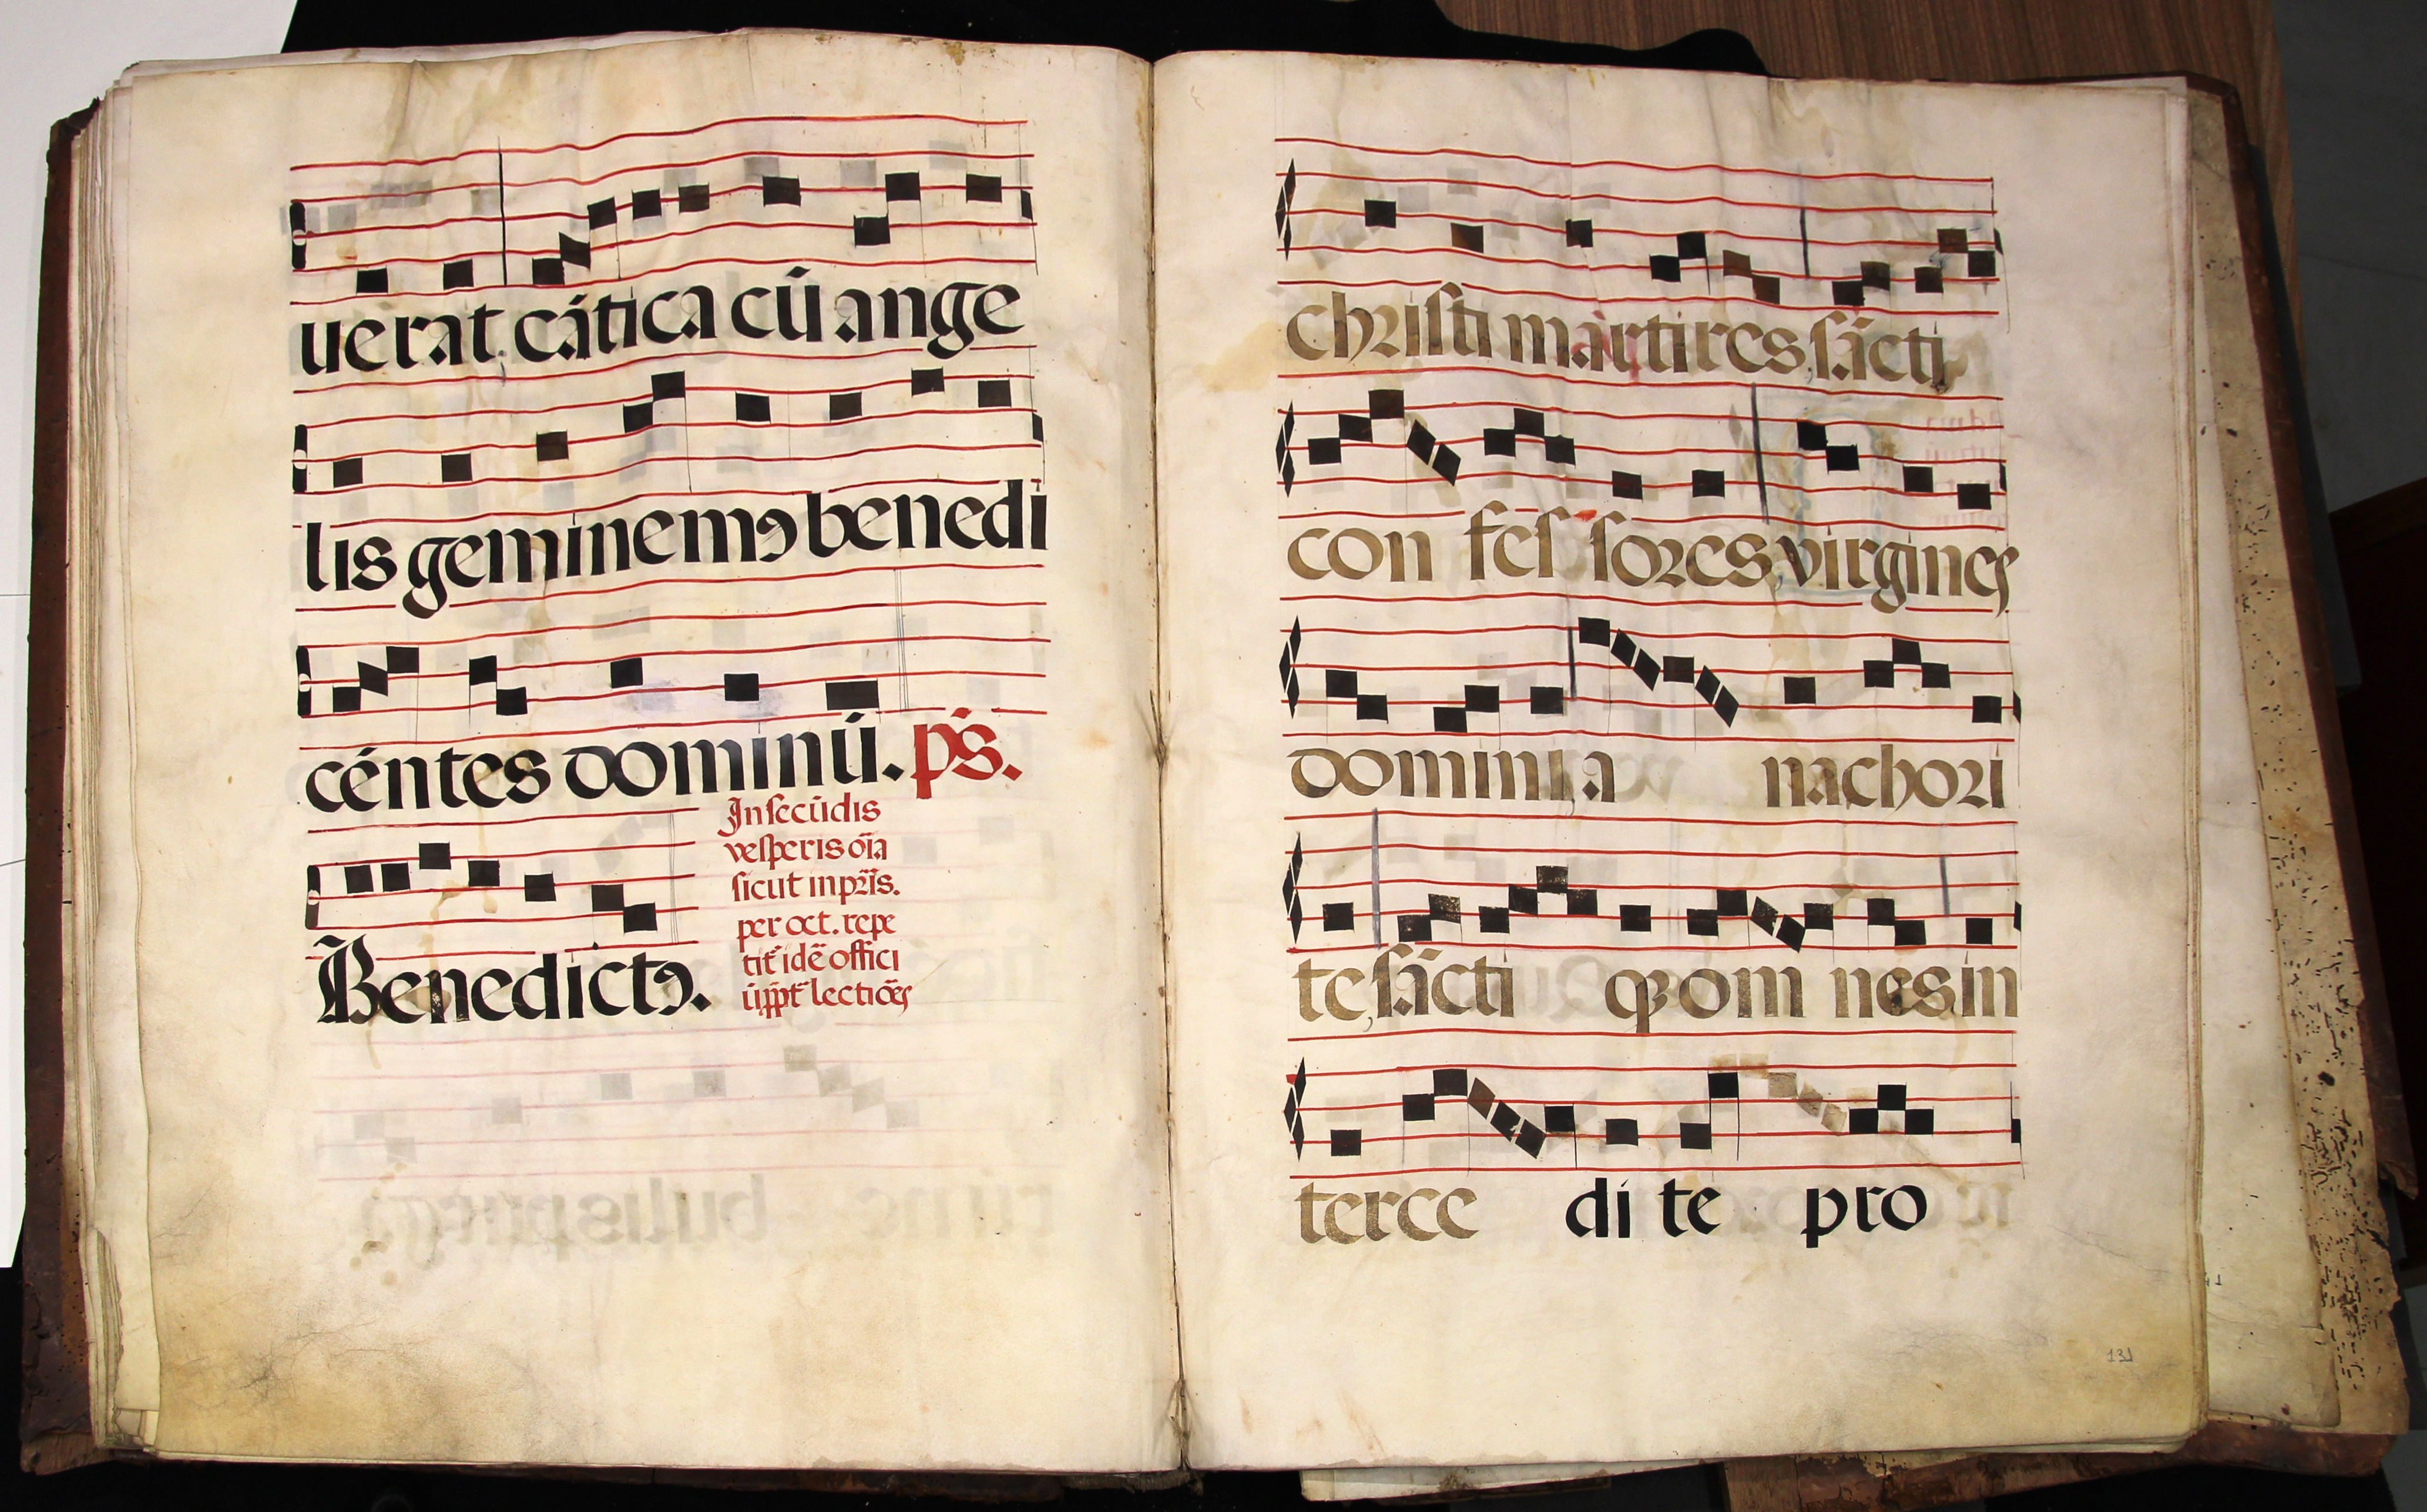 uerat cática cū ange
lis geminemꝯ benedi
céntes dominū. ps̄.
Benedictꝯ.
In secūdis
vesperis oīa
sicut in prīs.
per oct. repe
tit̄ idē offici
ū ppt̄ lectiōes
christi martires, sācti
con fes sores, virgines
domini, a nachori
te, sācti q̄ om nes, in
terce di te pro
131